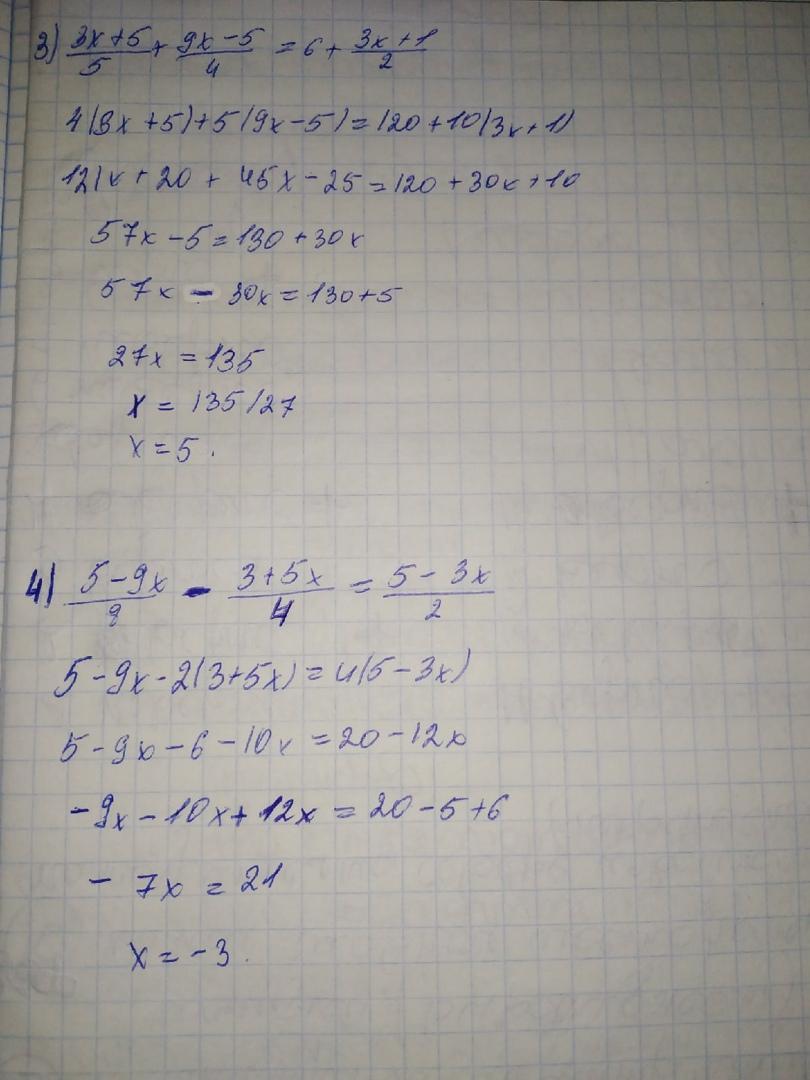 3) (3x+5)/5 + (9x-5)/4 = 6 + (3x+1)/2
4(3x+5)+5(9x-5)=120+10(3x+1)
12x+20+45x-25=120+30x+10
57x-5=130+30x
57x-30x=130+5
27x=135
x=135/27
x=5.
4) (5-9x)/8 - (3+5x)/4 = (5-3x)/2
5-9x-2(3+5x)=4(5-3x)
5-9x-6-10x=20-12x
-9x-10x+12x=20-5+6
-7x=21
x=-3.